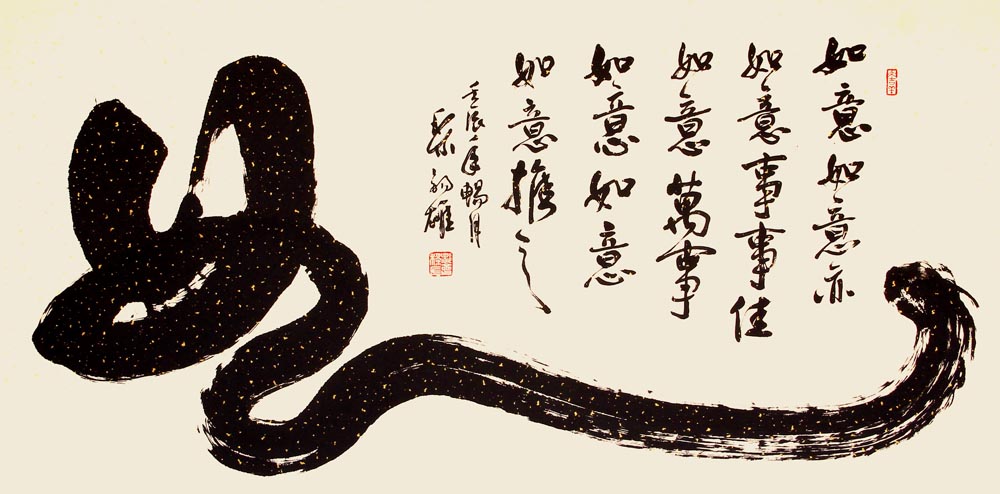 如意如意亦
如意事事佳
如意萬事
如意如意
如意推之
壬辰年暢月